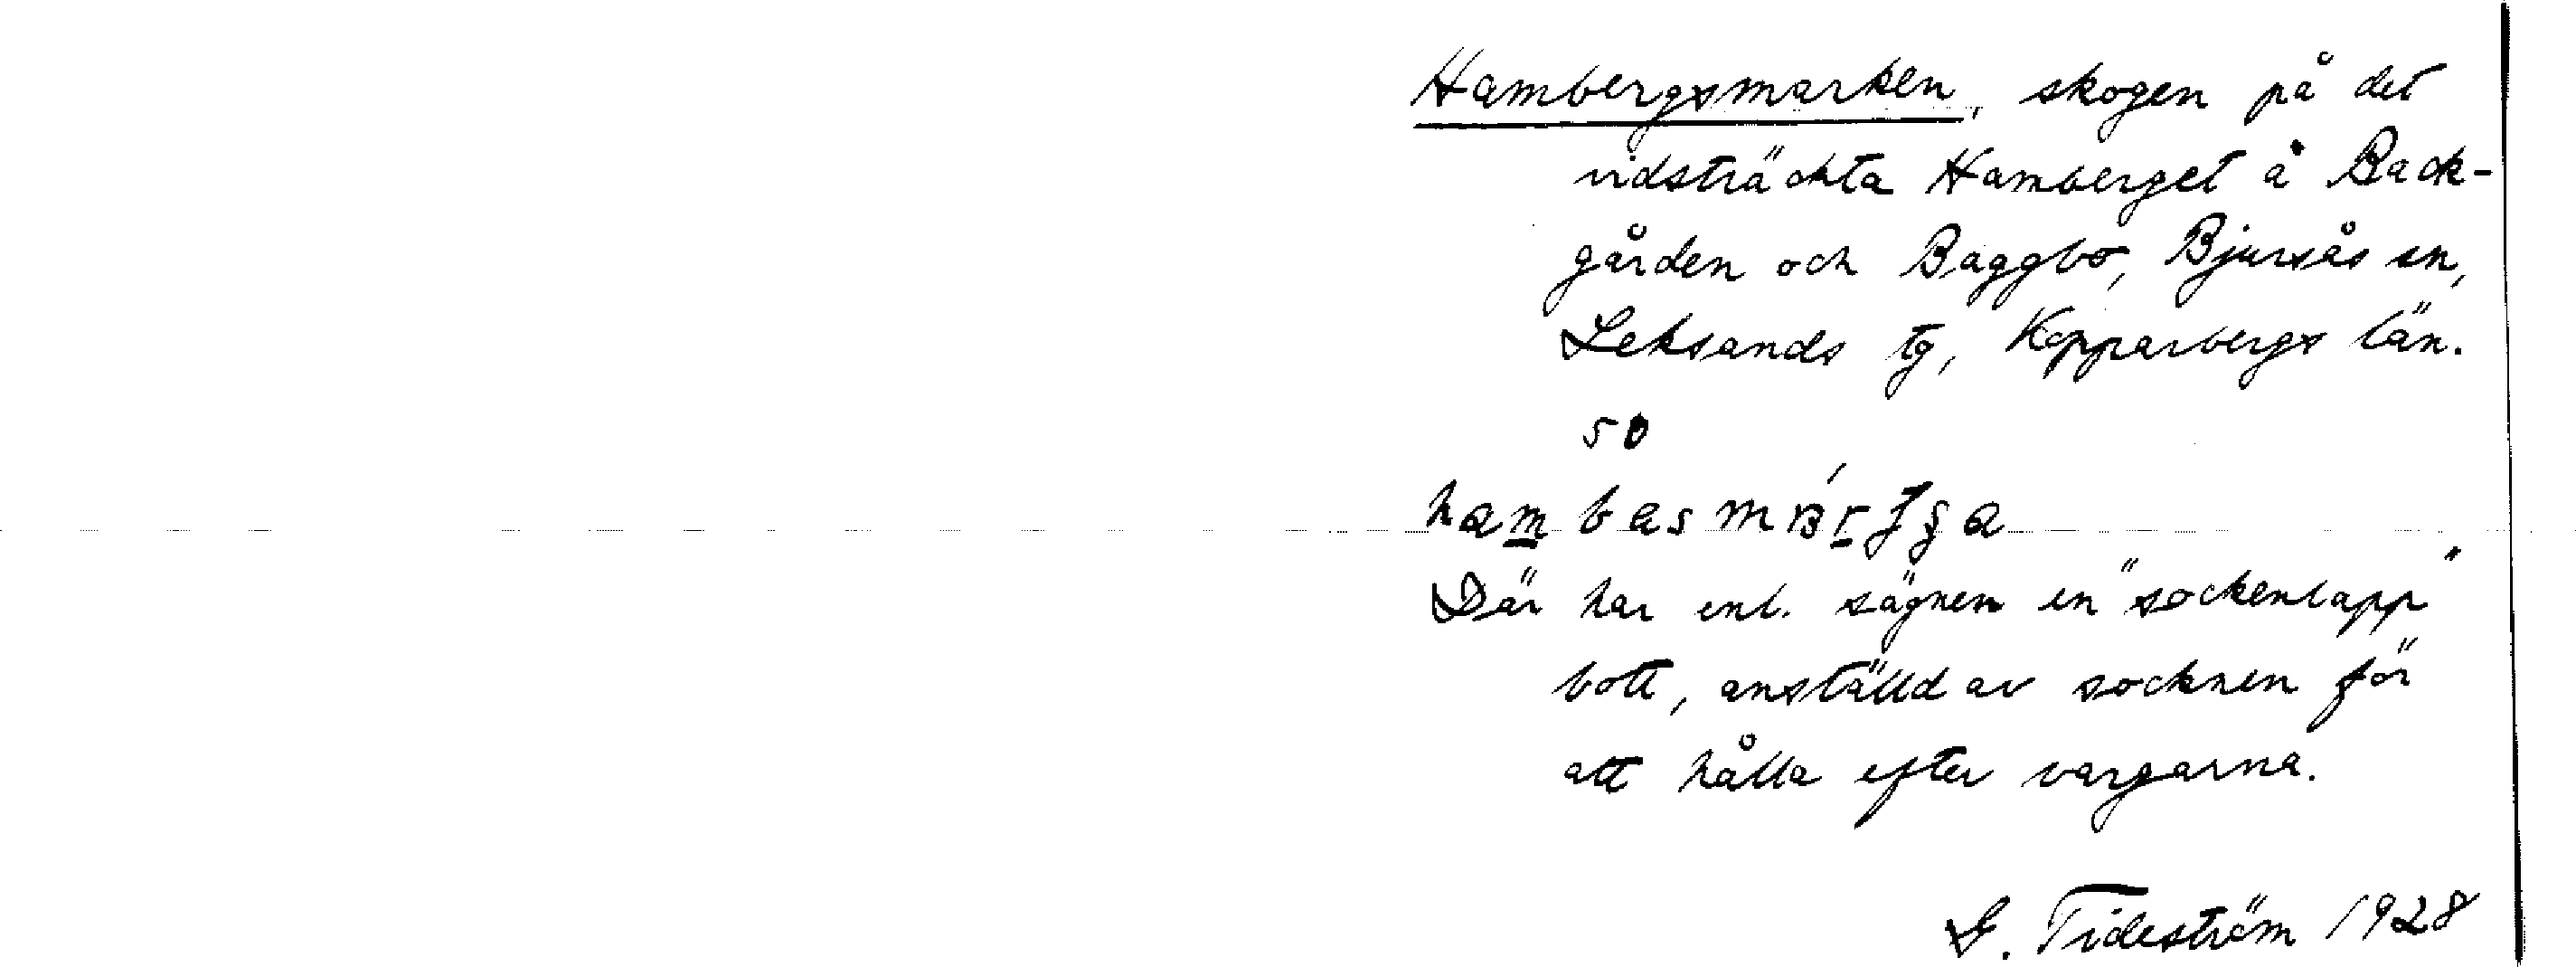 Hambergsmarken, skogen på det
vidsträckta Hamberget å Back-
gården och Baggbo, Bjursås sn,
Leksands tg, Kopparbergs län.
so
Där har enl. sägnen en "sockenlapp"
bott, anställd av socknen för
att hålla efter vargarna.
G. Tideström 1928